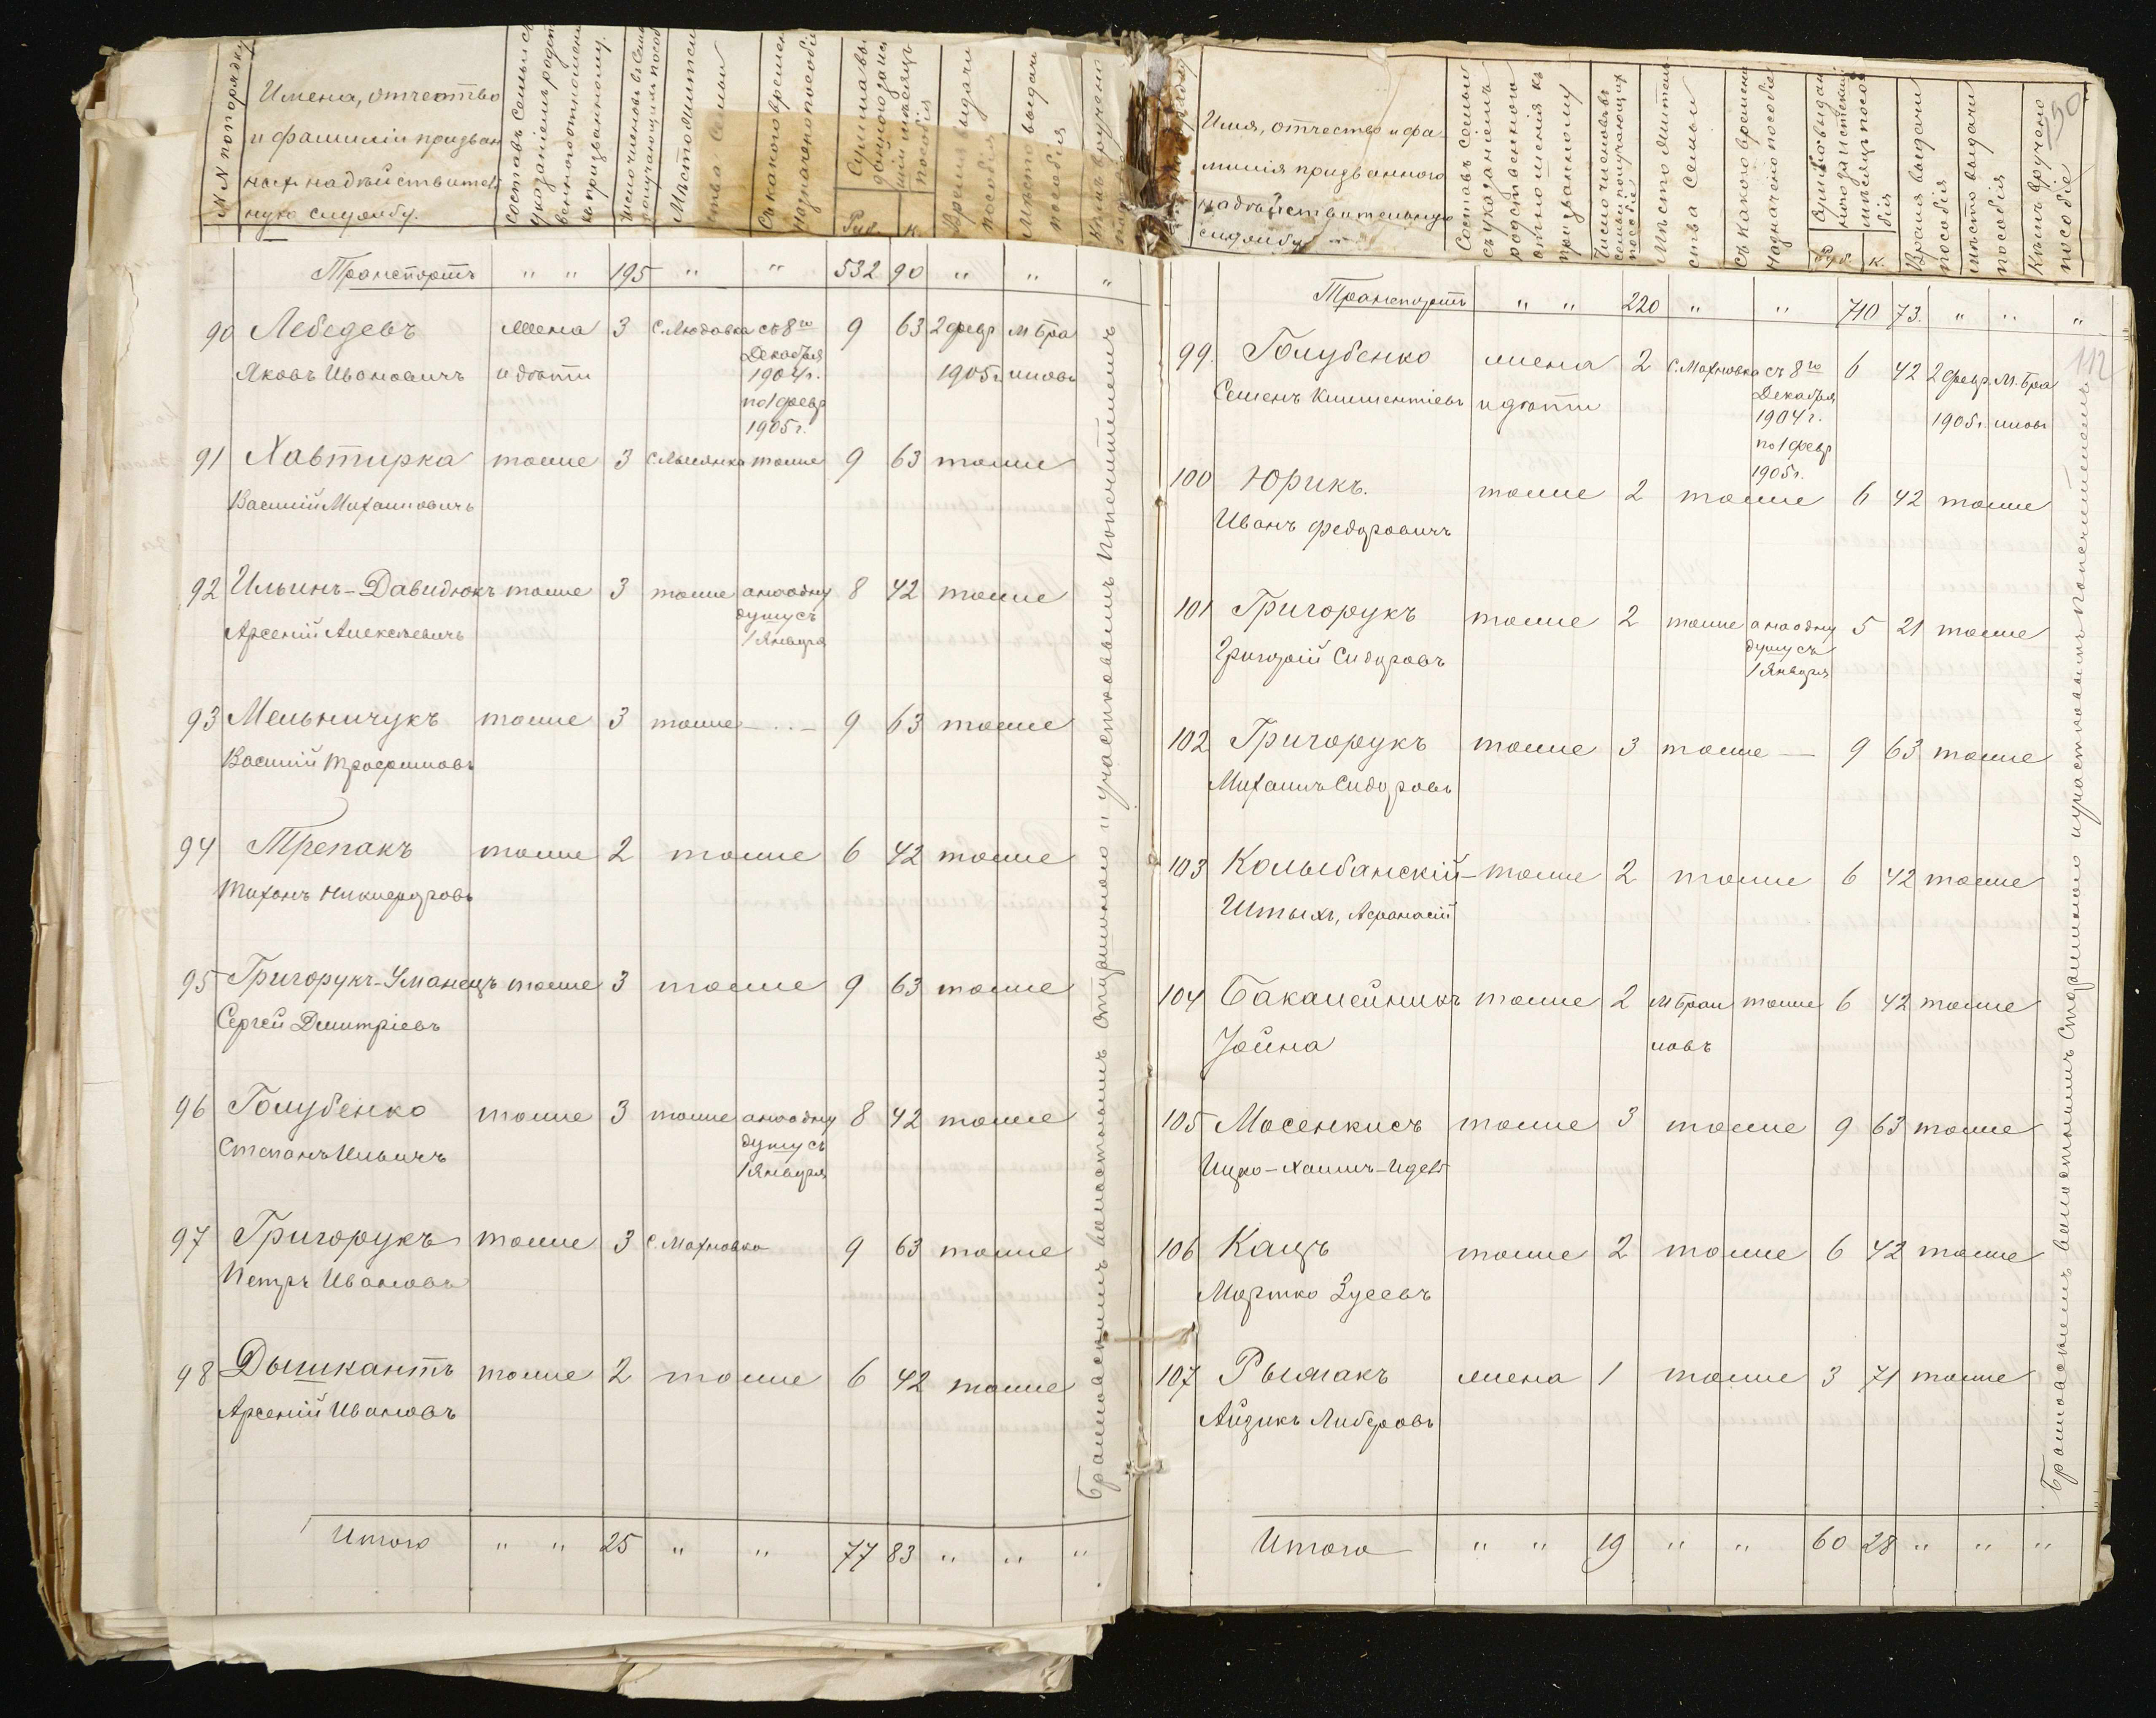 №№ по порядку
Имена, отчество
и фамиліи призван
ныхъ на дѣйствитель
ную службу.
Составъ семьи съ
указаніемъ родст
веннаго отношенія
къ призванному.
Число членовъ въ семь
получающихъ пособ
Мѣсто житель
ства семьи
Съ какого времени
назначено пособіе
Сумма вы
данного за ис
шій мѣсяцъ
пособія
Руб. К.
Время выдачи
пособія
Мѣсто выдачи
пособія
Кѣмъ вручено
Транспортъ " " 195 " " 532 90 " " "
90 Лебедевъ жена 3 с. Людовка съ 8го 9 63 2 февр м Бра
Декабря
Яковъ Ивановичъ и дѣти 1904г. 1905г. иловъ
по 1 февр
1905г.
91 Хавтирка тоже 3 тоже 9 63 тоже
Василій Михаиловичъ
92 Ильинъ-Давидюкъ тоже 3 тоже а на одну 8 42 тоже
душу съ
Арсеній Алексѣевичъ 1 Января
93 Мельничукъ тоже 3 тоже — . . — 9 63 тоже
Василій Трофимовъ
94 Трепакъ тоже 2 тоже 6 42 тоже
Тихонъ Никифоровъ
95 Григорукъ-Уманецъ тоже 3 тоже 9 63 тоже
Сергѣй Дмитріевъ
96 Голубенко тоже 3 тоже а на одну 8 42 тоже
душу съ
Степанъ Ильичъ 1 Января
97 Григорукъ тоже 3 с. Махновка 9 63 тоже
Петръ Ивановъ
98 Дышкантъ тоже 2 тоже 6 42 тоже
Арсеній Ивановъ
Итого " " 25 " " 77 83 " " "
Браиловскимъ волостнымъ старшиною и участковымъ попечителемъ
Имя, отчество и фа-
милія призванного
на дѣйствительную
службу
Составъ семьи
съ указаніемъ
родственного
отношенія къ
призванному
Число членовъ
семьи получающихъ
пособіе
Мѣсто житель
ства семьи
Съ какого времени
назначено пособіе
Сумма выдан
ного за истекшій
мѣсяцъ посо
бія
Руб. К.
Время выдачи
пособія
Мѣсто выдачи
пособія
Кѣмъ вручено
пособіе
112
Транспортъ " " 220 " " 710 73. " " "
99. Голубенко жена 2 с. Махновка съ 8го 6 42 2 февр. м. Бра
Декабря
Семенъ Климентіевъ и дѣти 1904г. 1905г. иловъ
по 1 февр
1905г.
100 Юрикъ. тоже 2 тоже 6 42 тоже
Иванъ Федоровичъ
101 Григорукъ тоже 2 тоже а на одну 5 21 тоже
душу съ
Григорій Сидоровъ 1 Января
102 Григорукъ тоже 3 тоже — 9 63 тоже
Михаилъ Сидоровъ
103 Колыбанскій- тоже 2 тоже 6 42 тоже
Штыхъ, Афанасій
104 Бакалейникъ тоже 2 м Браи тоже 6 42 тоже
Іойна ловъ
105 Мосенкисъ тоже 3 тоже 9 63 тоже
Ицко-Хаимъ-Идель
106 Кацъ тоже 2 тоже 6 42 тоже
Мортко Зусевъ
107 Рымакъ жена 1 тоже 3 71 тоже
Айзикъ Либеровъ
Итого " " 19 " " 60 28 " " "
Браиловскимъ волостнымъ старшиною и участковымъ попечителемъ